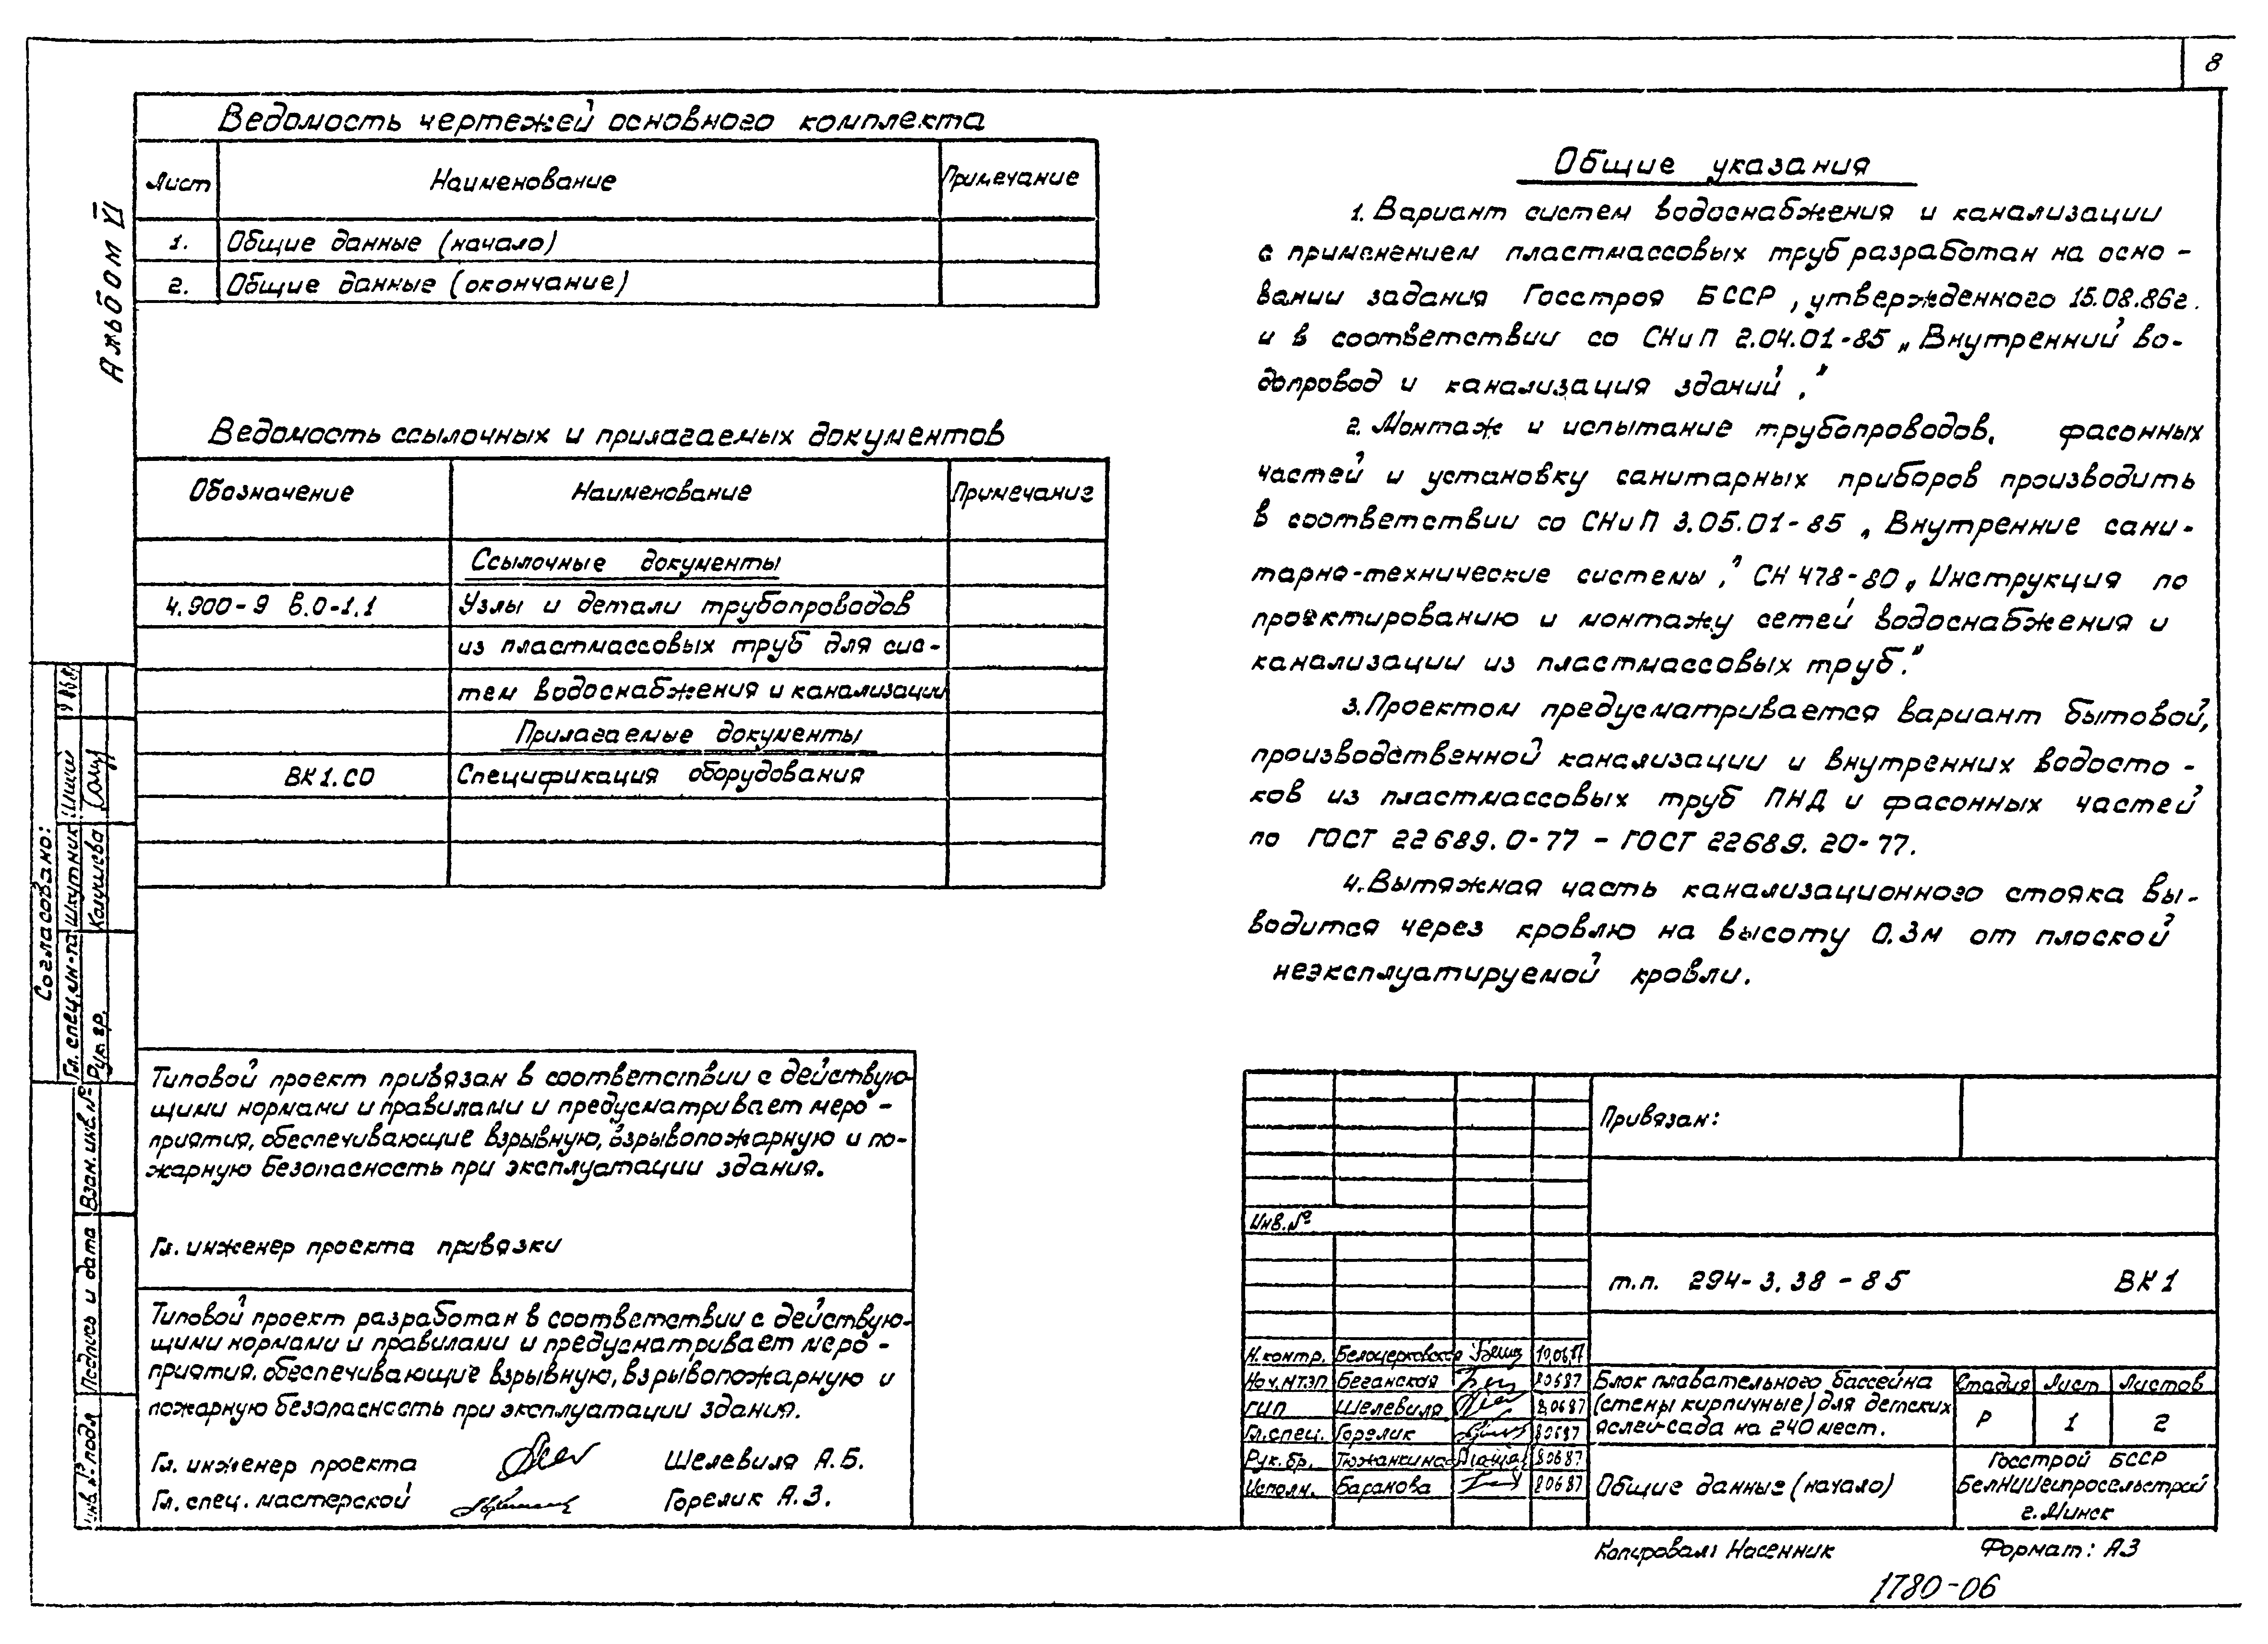 8
Альбом VI
Ведомость чертежей основного комплекта
Лист Наименование Примечание
1. Общие данные (начало)
2. Общие данные (окончание)
Ведомость ссылочных и прилагаемых документов
Обозначение Наименование Примечание
Ссылочные документы
4.900-9 в.0-1.1 Узлы и детали трубопроводов
из пластмассовых труб для сис-
тем водоснабжения и канализации
Прилагаемые документы
ВК1.СО Спецификация оборудования
Общие указания
1. Вариант систем водоснабжения и канализации
с применением пластмассовых труб разработан на осно-
вании задания Госстроя БССР, утвержденного 15.08.86г.
и в соответствии со СНиП 2.04.01-85 „Внутренний во-
допровод и канализация зданий."
2. Монтаж и испытание трубопроводов, фасонных
частей и установку санитарных приборов производить
в соответствии со СНиП 3.05.01-85 „Внутренние сани-
тарно-технические системы," СН 478-80 „Инструкция по
проектированию и монтажу сетей водоснабжения и
канализации из пластмассовых труб."
3. Проектом предусматривается вариант бытовой,
производственной канализации и внутренних водосто-
ков из пластмассовых труб ПНД и фасонных частей
по ГОСТ 22689.0-77 - ГОСТ 22689.20-77.
4. Вытяжная часть канализационного стояка вы-
водится через кровлю на высоту 0.3м от плоской
неэксплуатируемой кровли.
Согласовано:
Гл. спец. ин-та Шкутник
Рук. гр.
Взам. инв. №
Подпись и дата
Инв. № подл
Типовой проект привязан в соответствии с действую-
щими нормами и правилами и предусматривает меро-
приятия, обеспечивающие взрывную, взрывопожарную и по-
жарную безопасность при эксплуатации здания.
Гл. инженер проекта привязки
Типовой проект разработан в соответствии с действую-
щими нормами и правилами и предусматривает меро-
приятия, обеспечивающие взрывную, взрывопожарную и
пожарную безопасность при эксплуатации здания.
Гл. инженер проекта Шелевиля А.Б.
Гл. спец. мастерской Горелик А.З.
Привязан:
Инв. №
т.п. 294-3.38-85 ВК1
Н.контр. Белоцерковская
Нач.НТЭП Беганская 80687
ГИП Шелевиля 80687
Гл.спец. Горелик 80687
Рук.бр. Тюжанкина 80687
Исполн. Баранова 80687
Блок плавательного бассейна
(стены кирпичные) для детских
яслей-сада на 240 мест.
Стадия Лист Листов
Р 1 2
Общие данные (начало)
Госстрой БССР
БелНИИгипросельстрой
г. Минск
Копировал: Насенник Формат: А3
1780-06